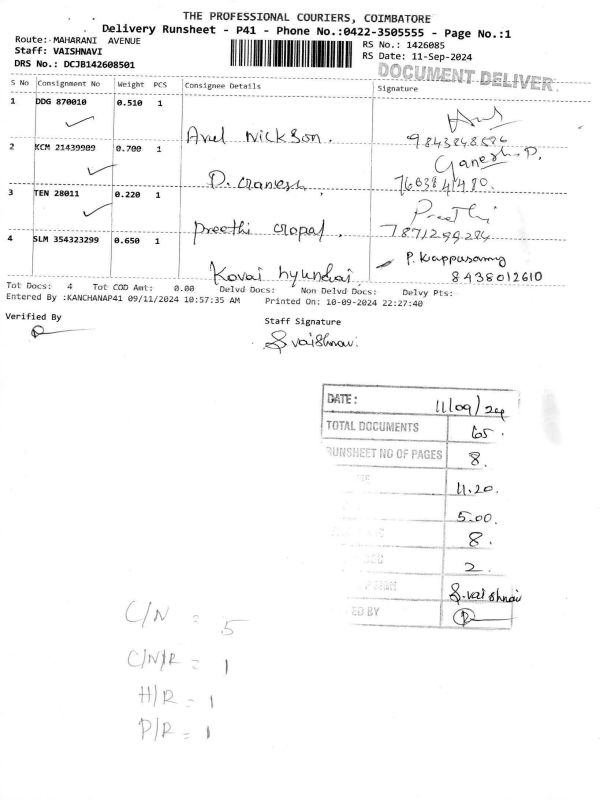 THE PROFESSIONAL COURIERS, COIMBATORE
Delivery Runsheet - P41 - Phone No.:0422-3505555 - Page No.:1
Route:- MAHARANI AVENUE
RS No.: 1426085
Staff: VAISHNAVI
RS Date: 11-Sep-2024
DRS No.: DCJB142608501
DOCUMENT DELIVER
S No Consignment No Weight PCS Consignee Details Signature
1 DDG 870010 0.510 1
Arul Nickson.
2 KCM 21439909 0.700 1
Ganesh. P.
D. Ganesh.
3 TEN 28011 0.220 1
Preethi
Preethi Gopal.
7871299284
4 SLM 354323299 0.650 1
P. Kappusamy
Kovai hyundai
8438012610
Tot Docs: 4 Tot COD Amt: 0.00 Delvd Docs: Non Delvd Docs: Delvy Pts:
Entered By :KANCHANAP41 09/11/2024 10:57:35 AM Printed On: 10-09-2024 22:27:40
Verified By
Staff Signature
S vaishnavi
DATE: 11/09/24
TOTAL DOCUMENTS 65.
RUNSHEET NO OF PAGES 8.
11.20.
5.00.
8.
2.
SIGN S.vaishnavi
ED BY
C/N = 5
C/N/R = 1
H/R = 1
P/R = 1